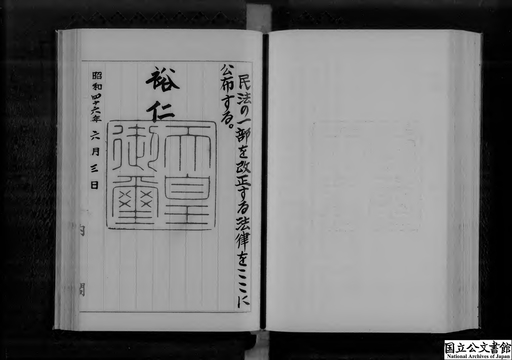 民法の一部を改正する法律をここに
公布する。
裕仁
天皇
御璽
昭和四十六年六月三日
内閣
国立公文書館
National Archives of Japan